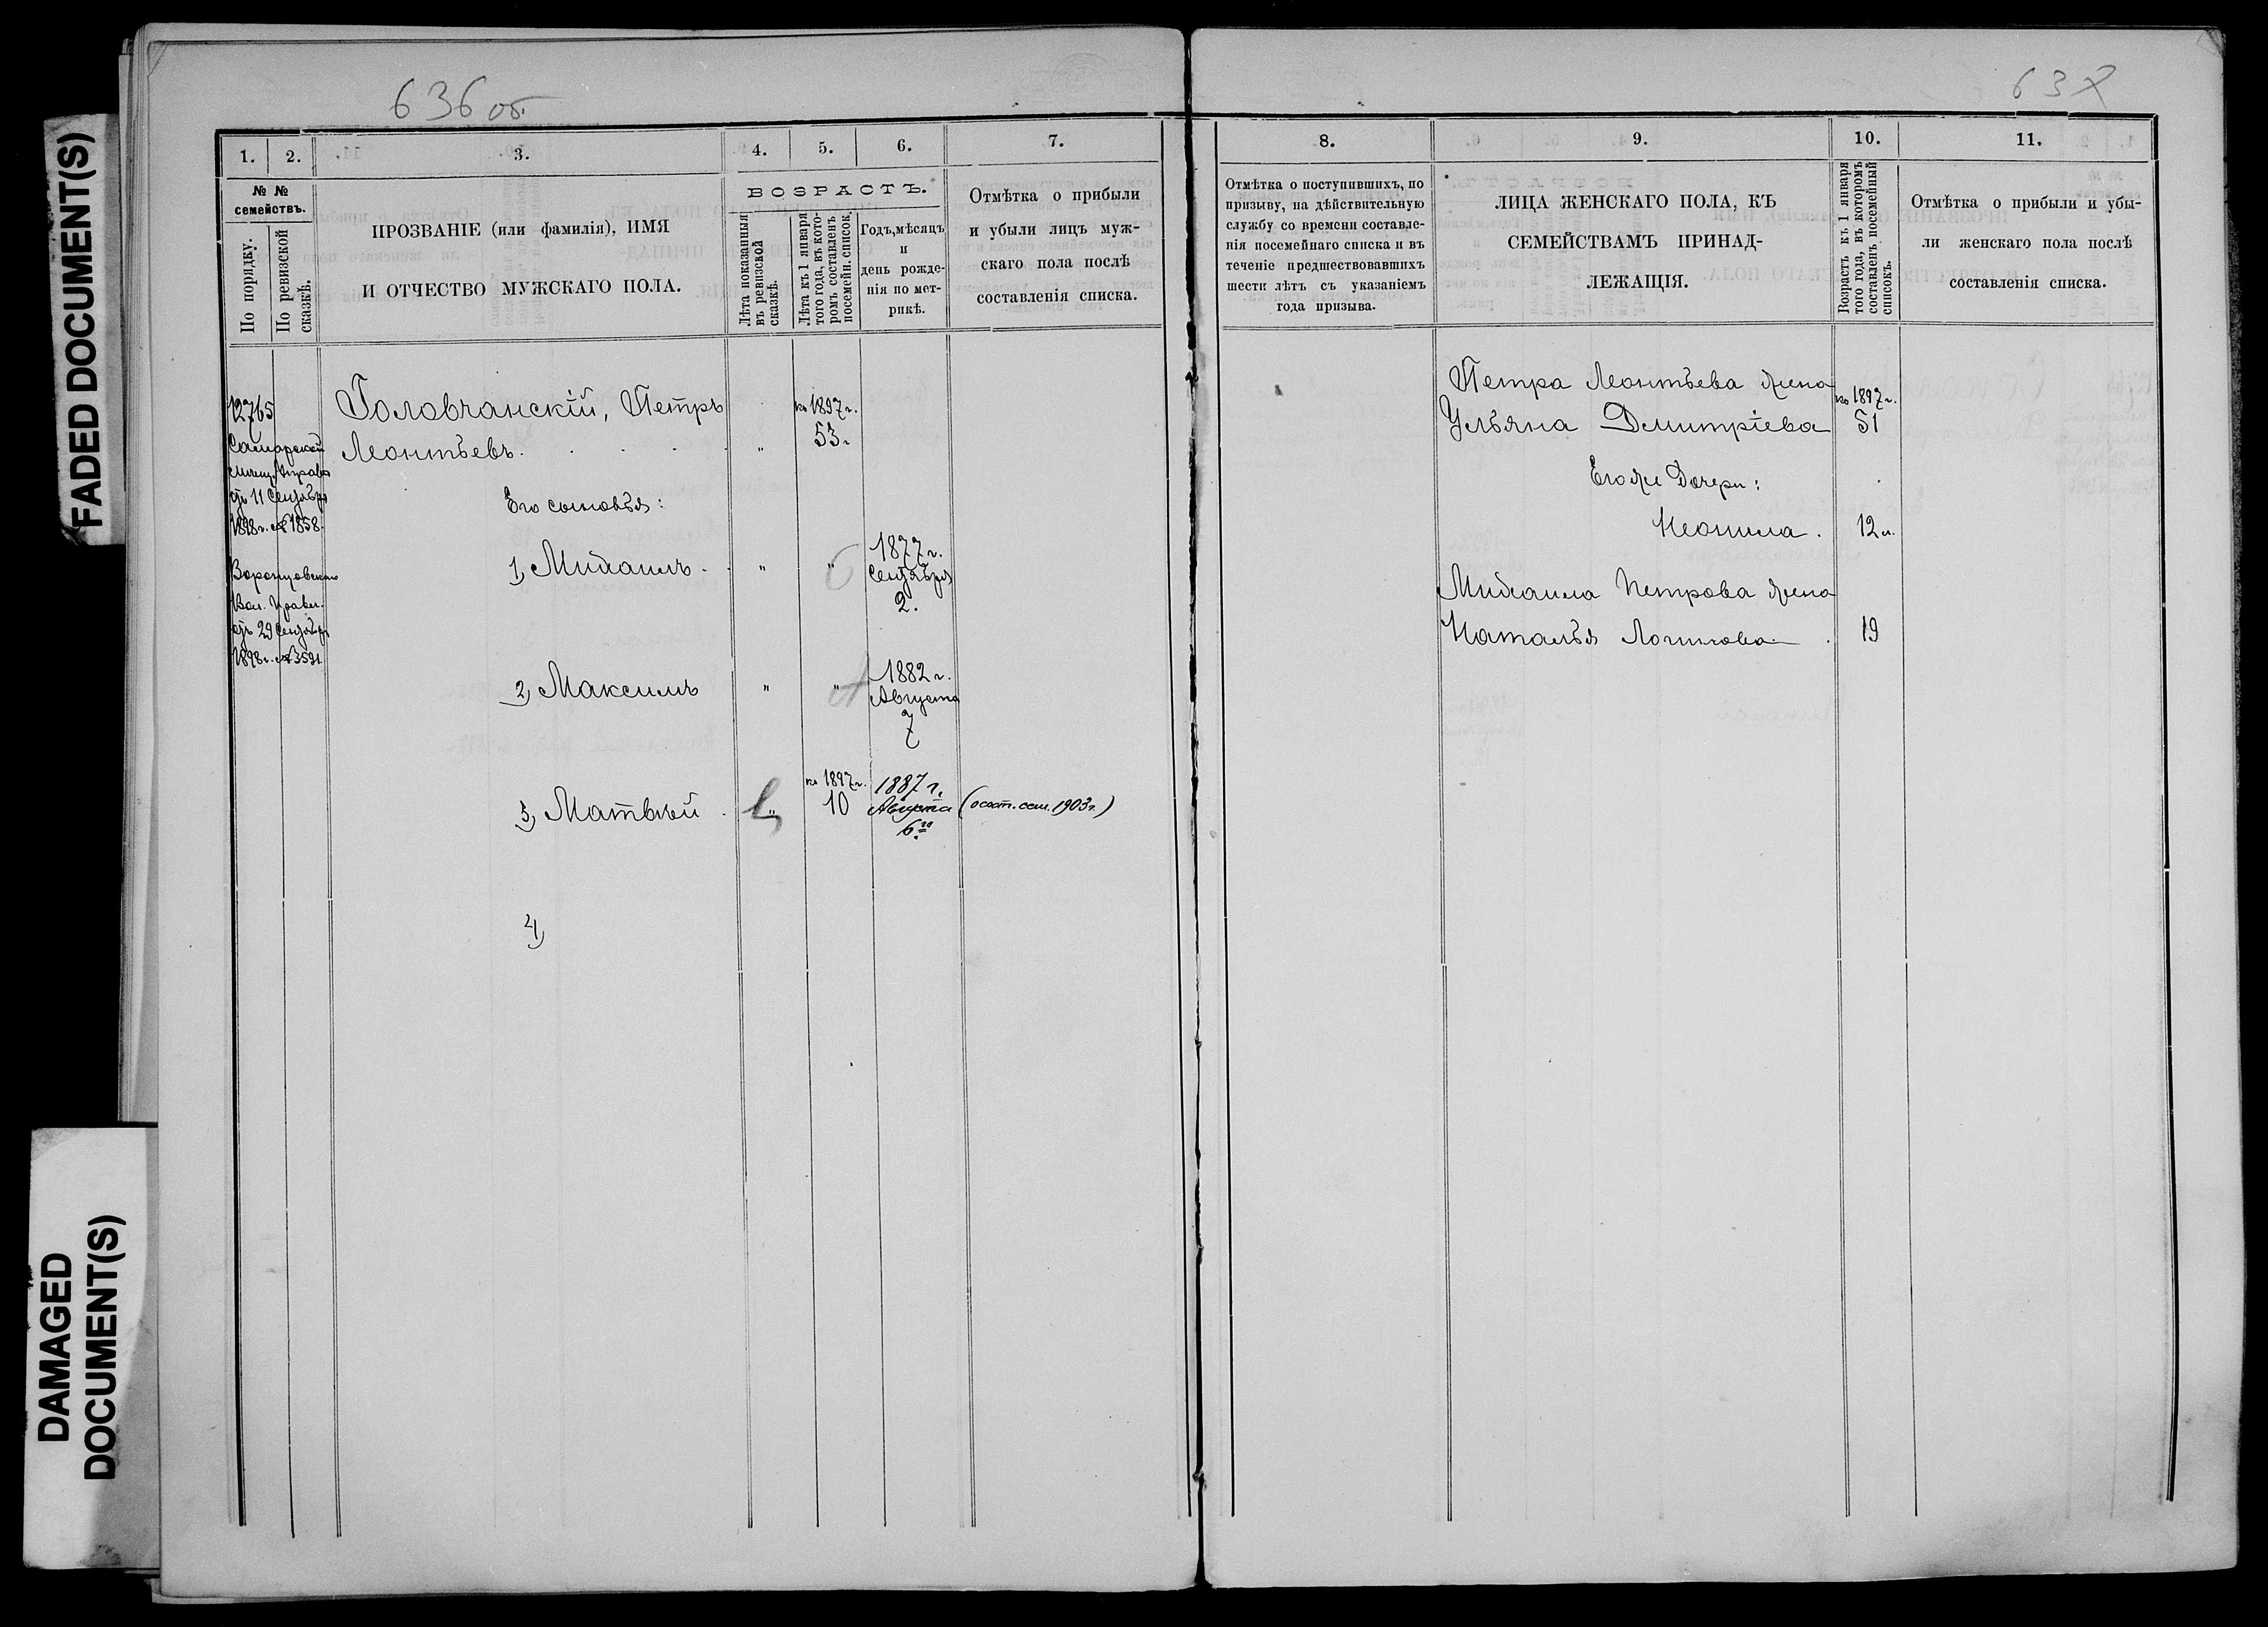 FADED DOCUMENT(S)
DAMAGED
DOCUMENT(S)
636 об.
1. 2. 3. 4. 5. 6. 7.
№ №
семействъ.
По порядку.
По ревизской
сказкѣ.
ПРОЗВАНІЕ (или фамилія), ИМЯ
И ОТЧЕСТВО МУЖСКАГО ПОЛА.
ВОЗРАСТЪ.
Лѣта показанныя
въ ревизской
сказкѣ.
Лѣта къ 1 января
того года, въ кото-
ромъ составленъ
посемейн. список.
Годъ, мѣсяцъ
и
день рожде-
нія по мет-
рикѣ.
Отмѣтка о прибыли
и убыли лицъ муж-
скаго пола послѣ
составленія списка.
12765
Самарской
мѣщ. Управы
отъ 11 Сентября
1898 г. № 1858.
Воронцовскаго
Вол. Правл.
отъ 29 Сентября
1898 г. № 3591.
Головчанскій, Петръ
Леонтьевъ. " къ 1897 г. 53.
Его сыновья:
1) Михаилъ. " " 1877 г. Сентября 2.
2) Максимъ " " 1882 г. Августа 7
3) Матвѣй. " къ 1897 г. 10 1887 г. Августа 6го (сост. сем. 1903 г.)
4)
63
8. 9. 10. 11.
Отмѣтка о поступившихъ, по
призыву, на дѣйствительную
службу со времени составле-
нія посемейнаго списка и въ
теченіе предшествовавшихъ
шести лѣтъ съ указаніемъ
года призыва.
ЛИЦА ЖЕНСКАГО ПОЛА, КЪ
СЕМЕЙСТВАМЪ ПРИНАД-
ЛЕЖАЩІЯ.
Возрастъ къ 1 января
того года, въ которомъ
составленъ посемейный
списокъ.
Отмѣтка о прибыли и убы-
ли женскаго пола послѣ
составленія списка.
Петра Леонтьева жена къ 1897 г.
Ульяна Дмитріева 51
Его же Дочери:
Неонила. 12 л.
Михаила Петрова жена
Наталья Логинова. 19